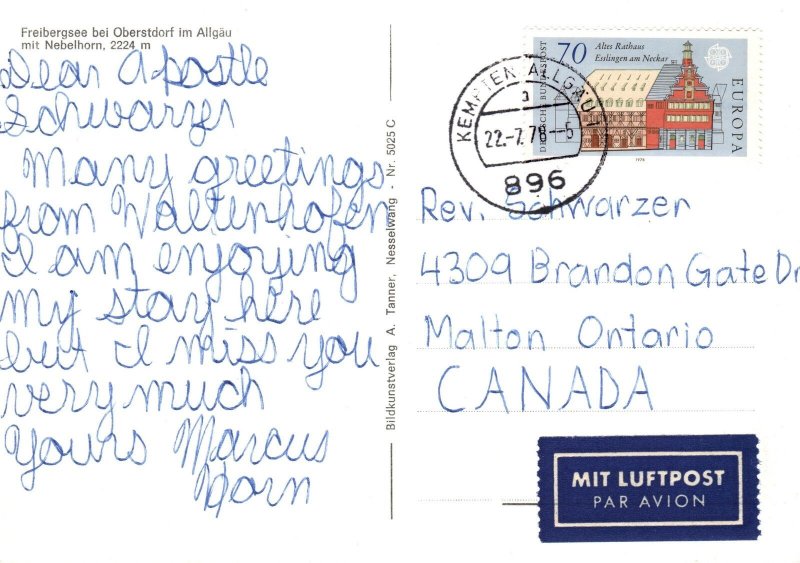 Freibergsee bei Oberstdorf im Allgäu
mit Nebelhorn, 2224 m
Dear Apostle
Schwarzer
Many greetings
from Waltenhofen
I am enjoying
my stay here
but I miss you
very much
Yours Marcus
Dorn
Bildkunstverlag A. Tanner, Nesselwang - Nr. 5025 C
DEUTSCHE BUNDESPOST
70
Altes Rathaus
Esslingen am Neckar
EUROPA
1978
KEMPTEN (ALLGÄU) 1
a
22.-7.78--5
896
Rev. Schwarzer
4309 Brandon Gate Dr
Malton Ontario
CANADA
MIT LUFTPOST
PAR AVION